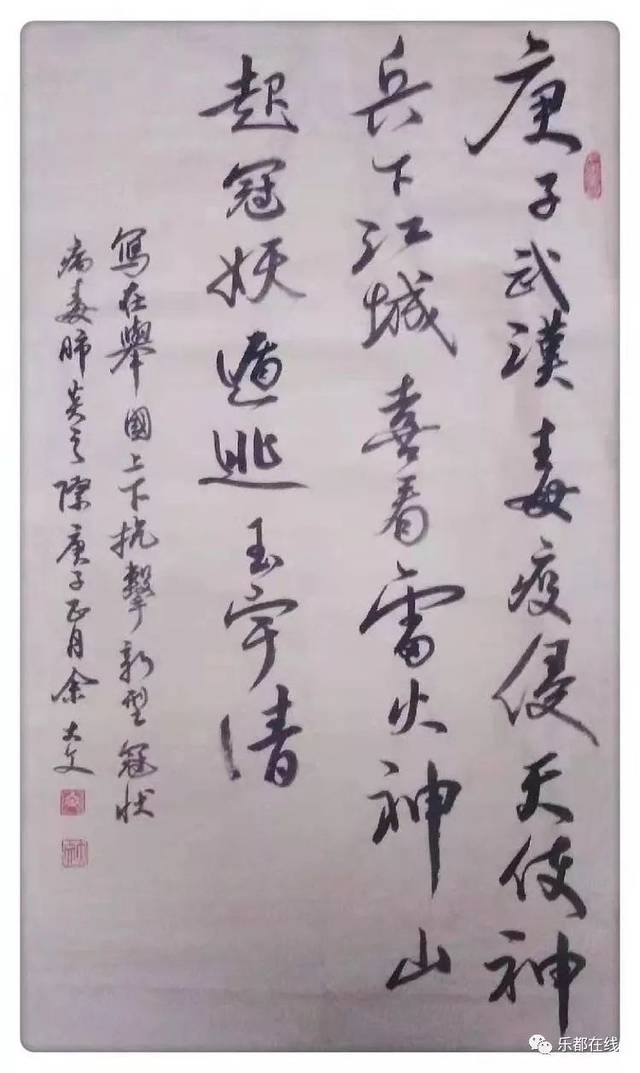 庚子武漢毒疫侵天使神
兵下江城喜看雷火神山
起冠妖遁逃玉宇清
寫在舉國上下抗擊新型冠狀
病毒肺炎之際庚子正月余大文
乐都在线